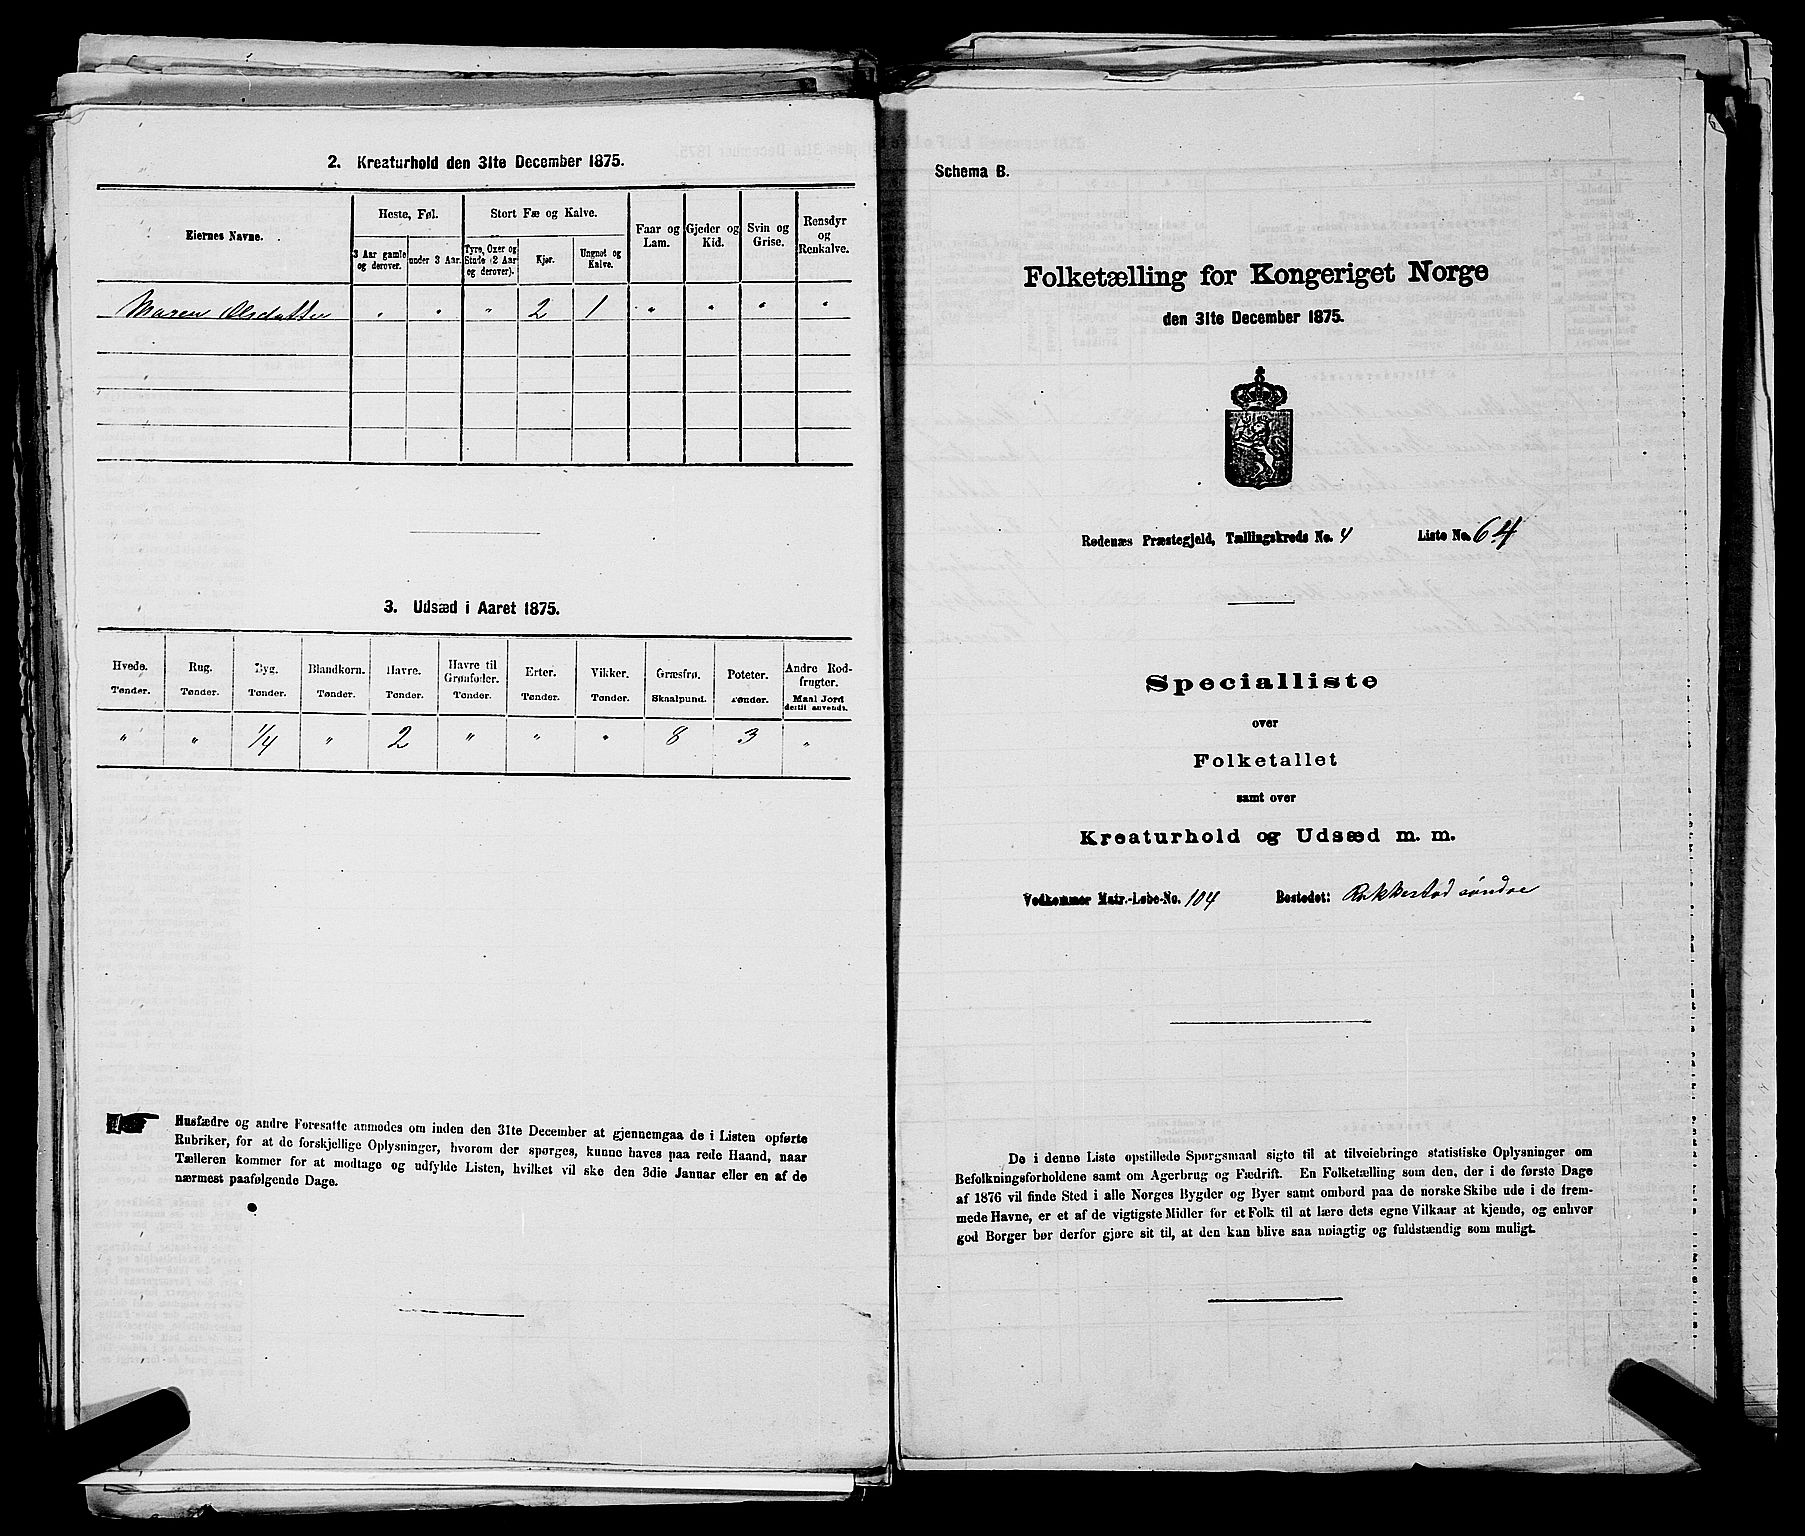 2. Kreaturhold den 31te December 1875.
Eiernes Navne.
Heste, Føl.
Stort Fæ og Kalve.
Faar og Lam.
Gjeder og Kid.
Svin og Grise.
Rensdyr og Renkalve.
3 Aar gamle og derover.
under 3 Aar.
Tyre, Oxer og Stude (2 Aar og derover).
Kjør.
Ungnøt og Kalve.
Maren Olsdatter " " " 2 1 " " " "
3. Udsæd i Aaret 1875.
Hvede. Rug. Byg. Blandkorn. Havre. Havre til Grønfoder. Erter. Vikker. Græsfrø. Poteter. Andre Rodfrugter.
Tønder. Tønder. Tønder. Tønder. Tønder. Tønder. Tønder. Tønder. Skaalpund. Tønder. Maal Jord dertil anvendt.
" " 1/4 " 2 " " " 8 3 "
Husfædre og andre Foresatte anmodes om inden den 31te December at gjennemgaa de i Listen opførte
Rubriker, for at de forskjellige Oplysninger, hvorom der spørges, kunne haves paa rede Haand, naar
Tælleren kommer for at modtage og udfylde Listen, hvilket vil ske den 3die Januar eller en af de
nærmest paafølgende Dage.
Schema B.
Folketælling for Kongeriget Norge
den 31te December 1875.
Rødenæs Præstegjeld, Tællingskreds No. 4 Liste No. 64
Specialliste
over
Folketallet
samt over
Kreaturhold og Udsæd m. m.
Vedkommer Matr.-Løbe-No. 104 Bostedet: Rakkestad søndre
De i denne Liste opstillede Spørgsmaal sigte til at tilveiebringe statistiske Oplysninger om
Befolkningsforholdene samt om Agerbrug og Fædrift. En Folketælling som den, der i de første Dage
af 1876 vil finde Sted i alle Norges Bygder og Byer samt ombord paa de norske Skibe ude i de frem-
mede Havne, er et af de vigtigste Midler for et Folk til at lære dets egne Vilkaar at kjende, og enhver
god Borger bør derfor gjøre sit til, at den kan blive saa nøiagtig og fuldstændig som muligt.